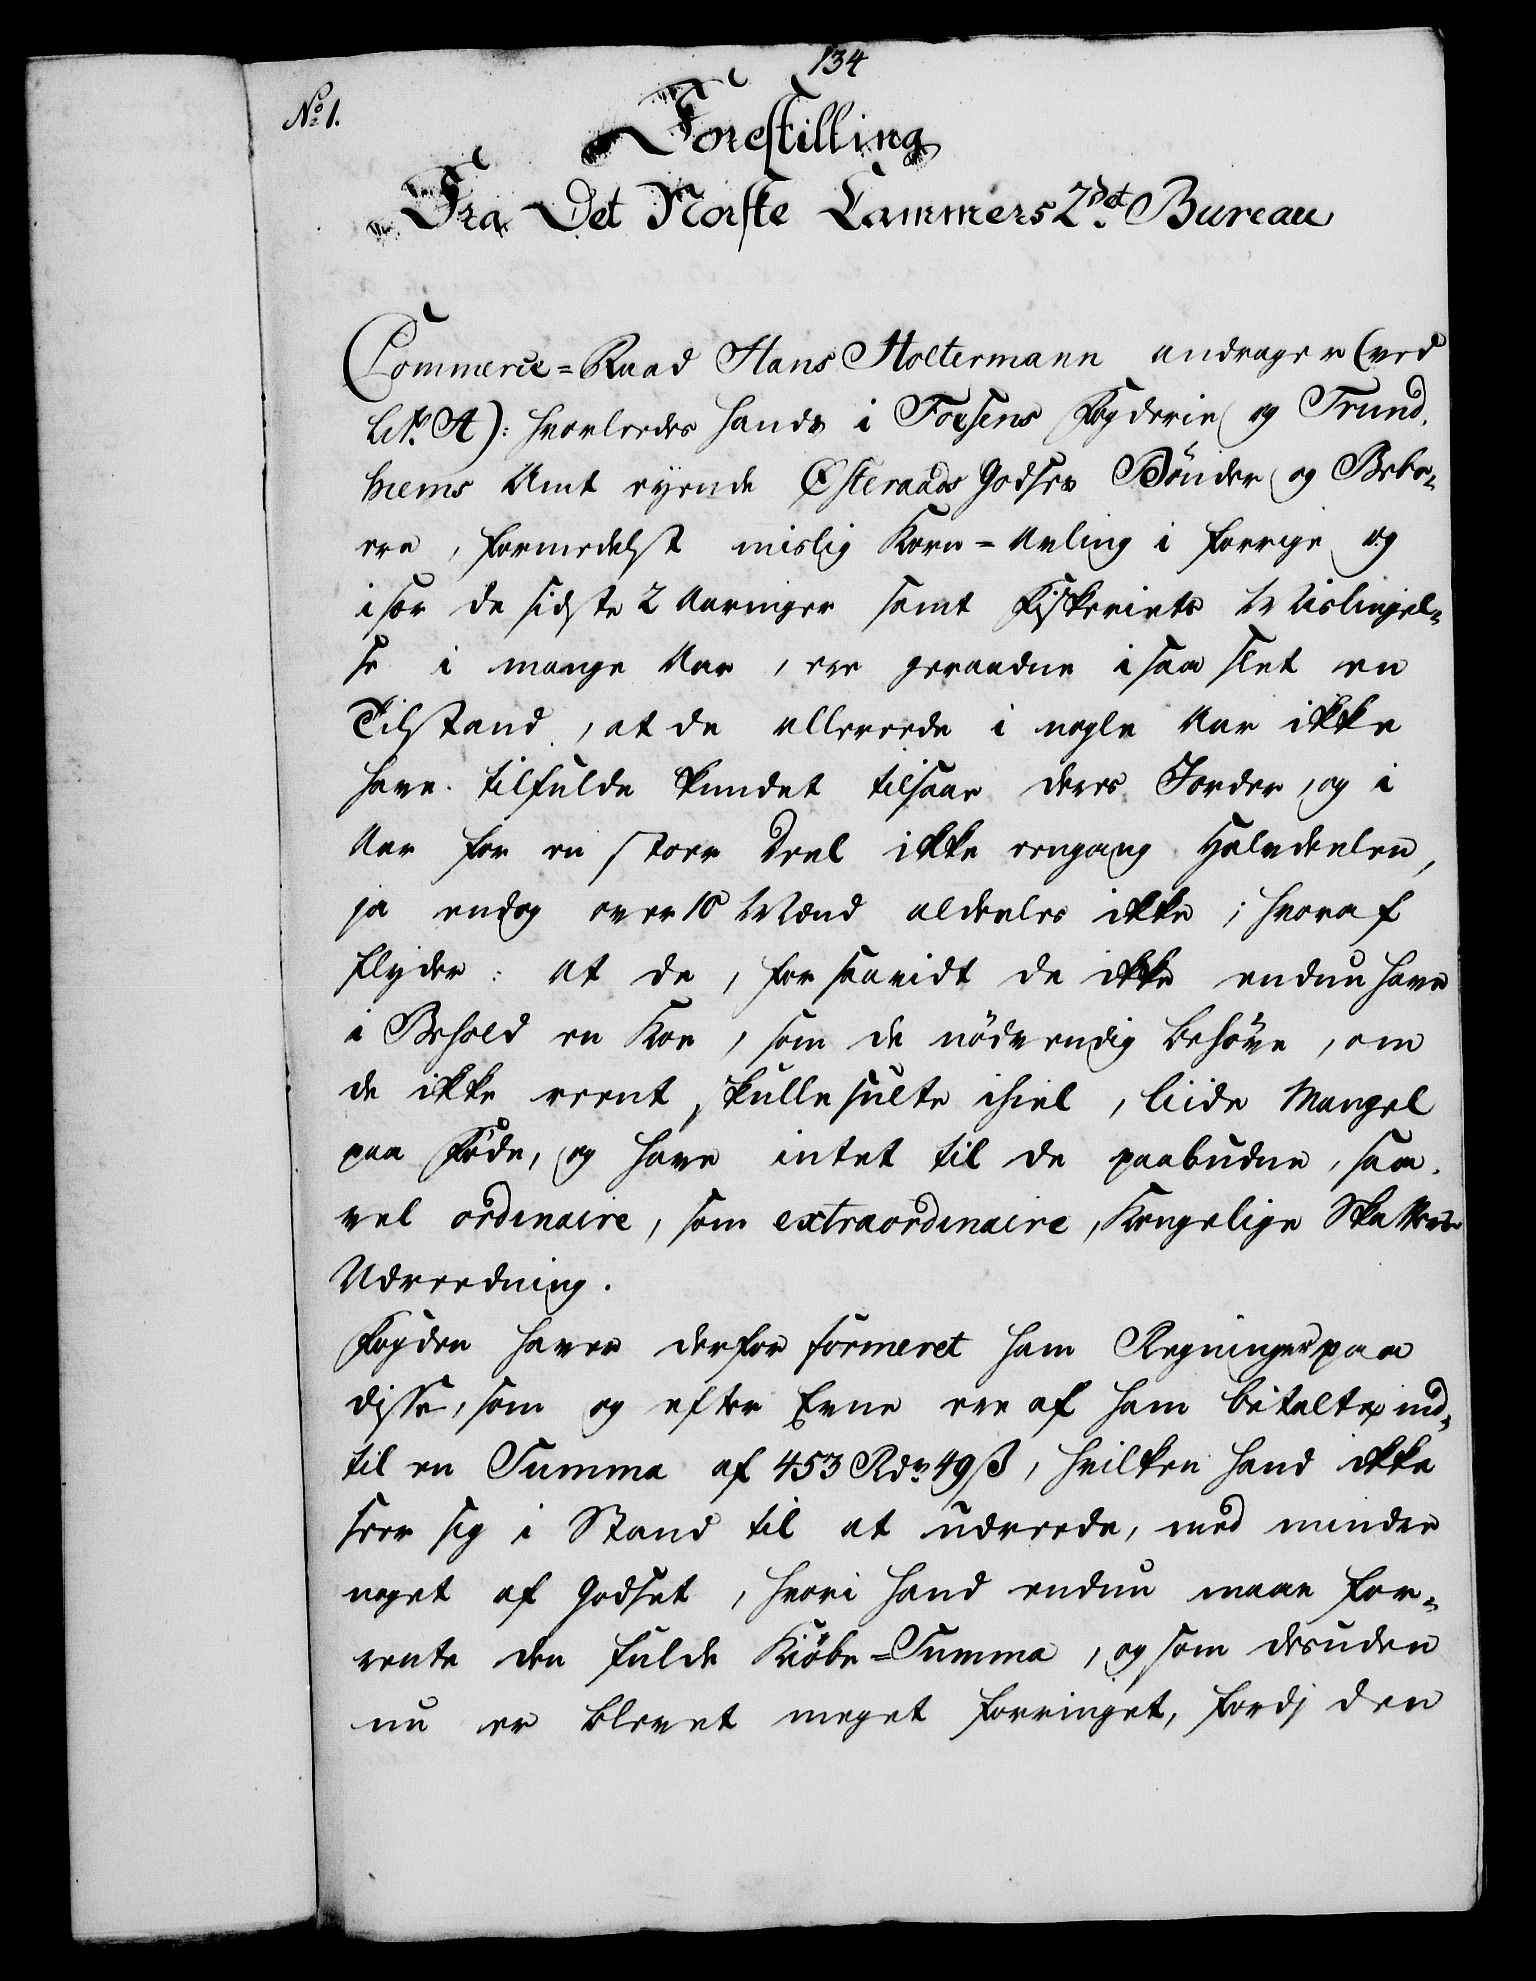 134
No 1.
Forestilling
Fra Det Norske Cammers 2det Bureau
Commerce=Raad Hans Holtermann andrager (ved
Litr. A): hvorledes hands i Fosens Fogderie og Trund,
hiems Amt eyende Østeraads Godses Bönder og Bebo=
ere, formedelst mislig Korn=Avling i forrige og
især de sidste 2 Aaringer samt Fiskeriets Mislingel=
se i mange Aar, ere geraadne i saa slet en
Tilstand, at de allereede i nogle Aar ikke
have tilfulde kundet tilsaae deres Jorder, og i
Aar for en stoer Deel ikke eengang Halvdeelen,
ja endog over 10 Mænd aldeeles ikke; hvoraf
flyder: at de, forsaavidt de ikke endnu have
i Behold en Koe, som de nödvendig behöve, om
de ikke reent skulle sulte ihiel, liide Mangel
paa Föde, og have intet til de paabudne, saa,
vel ordinaire, som extraordinaire, Kongelige Skatters
Udreedning.
Fogden haver derfor formeret ham Regninger paa
disse, som og efter Evne ere af ham betalte, ind=
til en Summa af 453 Rdr 49 ß, hvilken hand ikke
seer sig i Stand til at udreede, med mindre
noget af Godset, hvori hand endnu maae for=
rente den fulde Kiöbe=Summa, og som desuden
nu er blevet meget forringet, fordj den